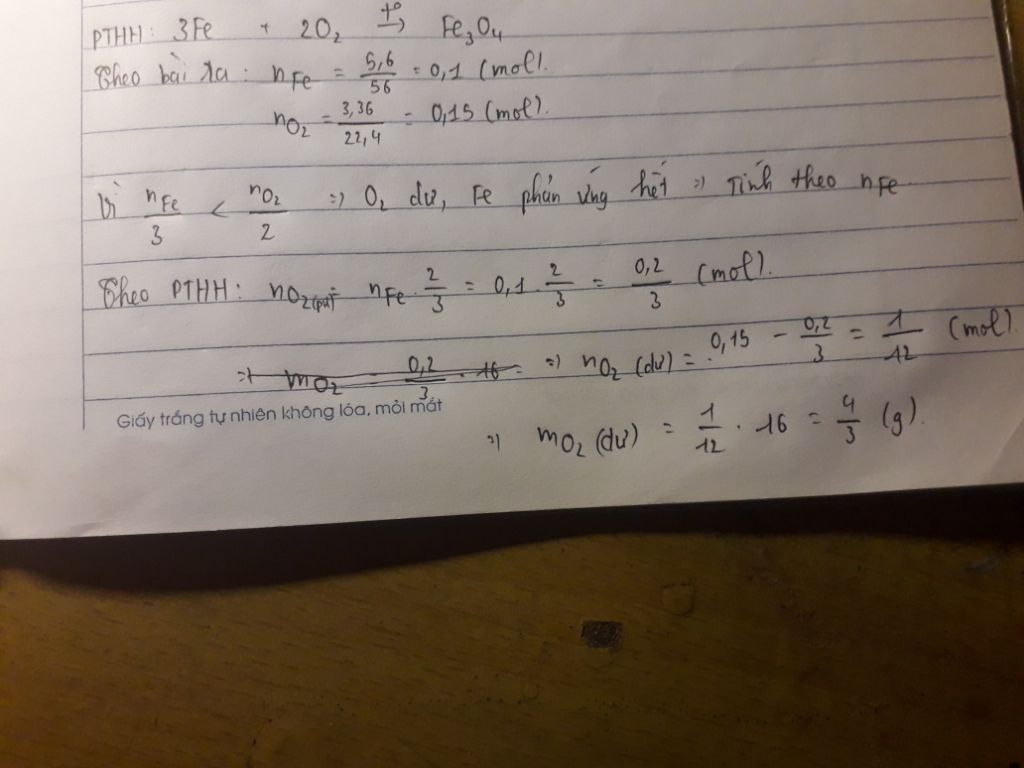 PTHH: 3Fe + 2O₂ →(t°) Fe₃O₄
Theo bài ra: nFe = 5,6/56 = 0,1 (mol).
nO₂ = 3,36/22,4 = 0,15 (mol).
Vì nFe/3 < nO₂/2 => O₂ dư, Fe phản ứng hết => Tính theo nFe
Theo PTHH: nO₂(pư) = nFe . 2/3 = 0,1 2/3 = 0,2/3 (mol).
=> mO₂ = 0,2/3 . 16 = => nO₂ (dư) = 0,15 - 0,2/3 = 1/12 (mol).
Giấy trắng tự nhiên không lóa, mỏi mắt
=> mO₂ (dư) = 1/12 . 16 = 4/3 (g).